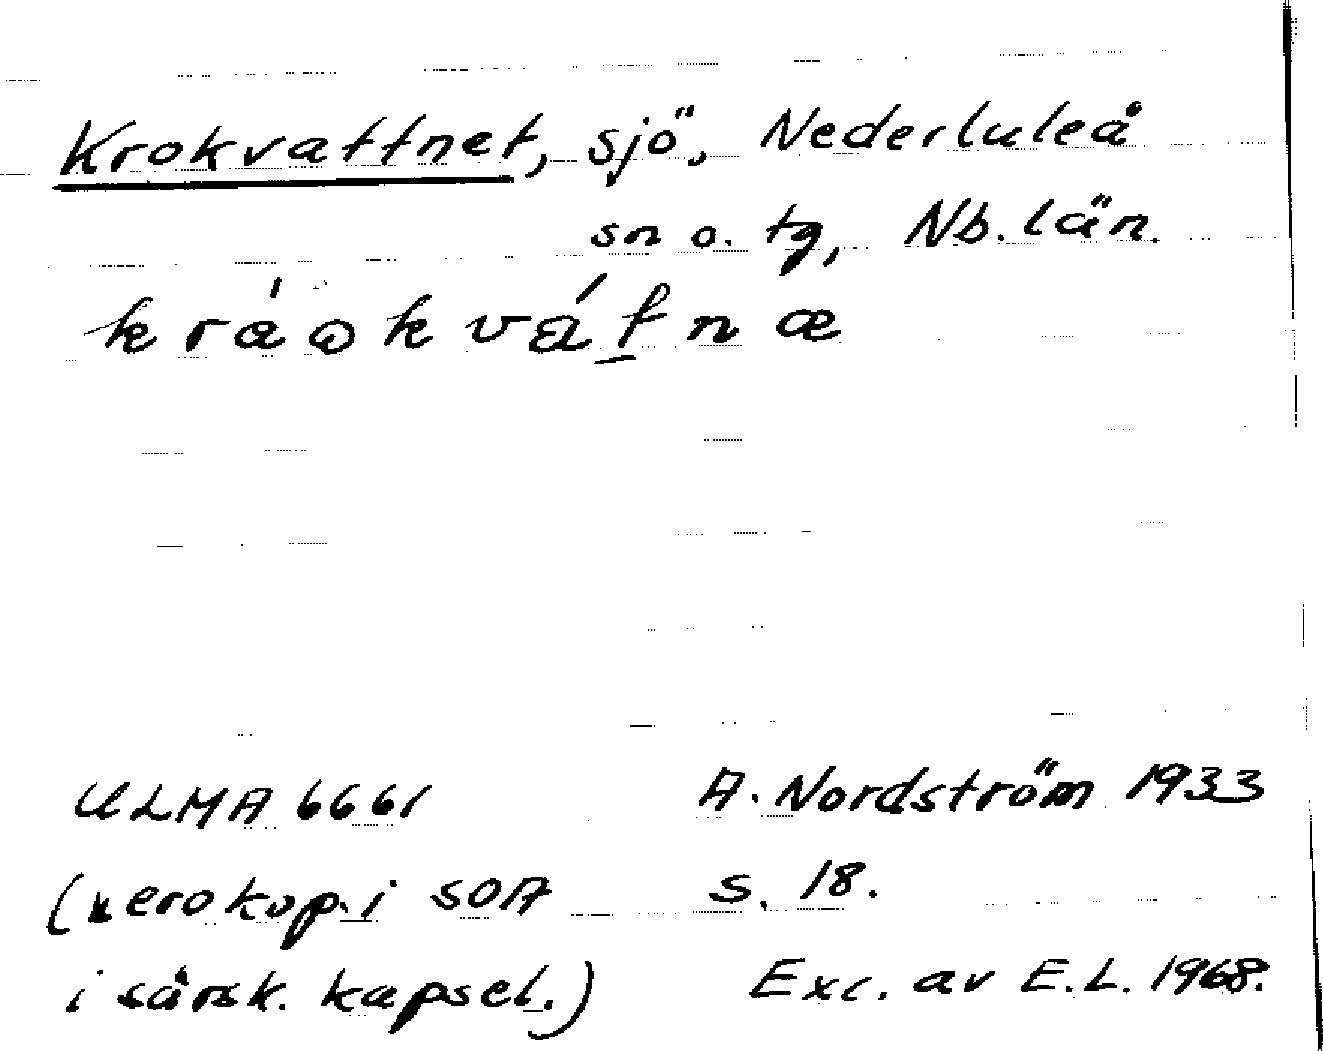 Krokvattnet, sjö, Nederluleå
sn o. tg, Nb. län.
kráokvátnæ
ULMA 6661
A. Nordström 1933
(xerokop. i SOA
s. 18.
i särsk. kapsel.)
Exc. av E.L. 1968.